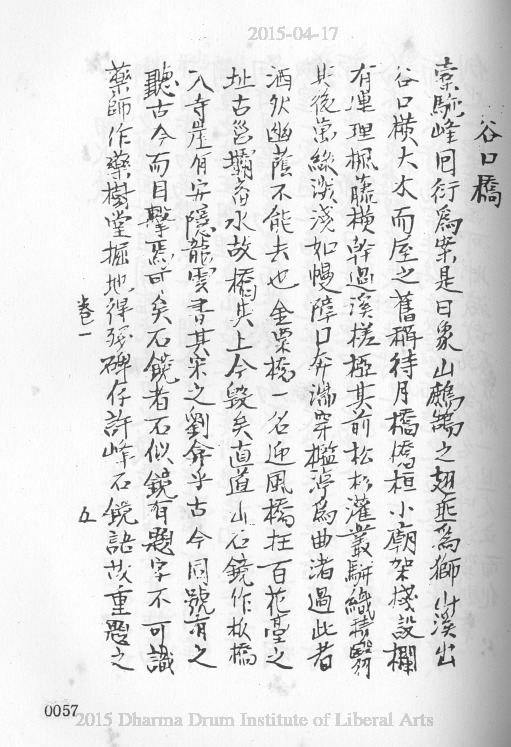 2015-04-17
谷口橋
橐駝峰回衍爲業是曰象山鷓鴣之翅垂爲獅山溪出
谷口橫大水而屋之舊稱待月橋橋桓小廟架棧設欄
有連理楓藤橫幹過溪槎椏其前松杉灌叢駢織積翳
其後萬絲濺淺如幔障口奔湍穿檻渟爲曲渚過此者
洒然幽蔭不能去也金粟橋一名迎風橋在百花臺之
址古甃攔畜水故橋其上今毀矣直道山石鏡作板橋
入寺崖有安隱龍雲書其宋之劉弇乎古今同號有之
聽古今而目擊焉可矣石鏡者石似鏡有題字不可識
藥師作藥樹堂掘地得殘碑仔許峰石鏡語故重題之
卷一
五
0057
2015 Dharma Drum Institute of Liberal Arts